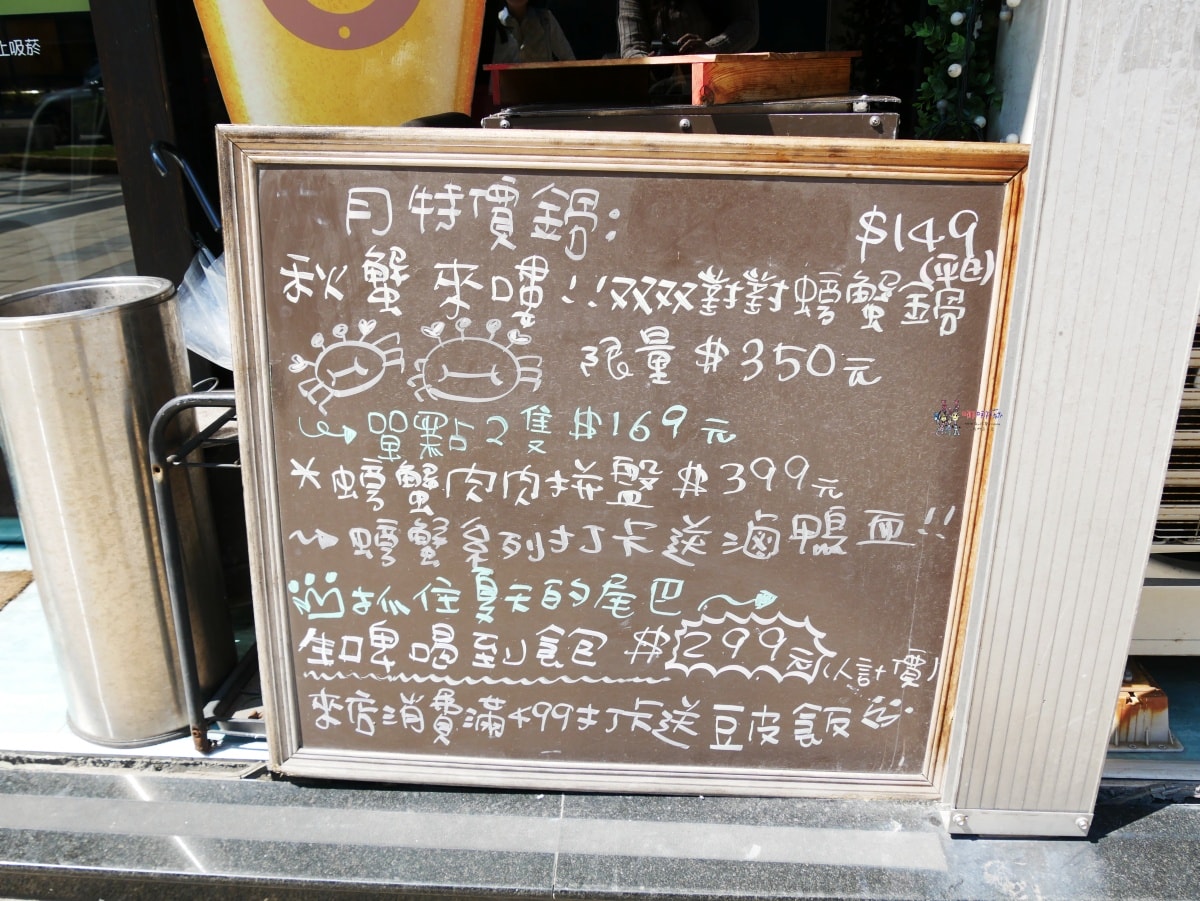 止吸菸
月特價鍋: $149
(平日)
秋蟹來嘍!!双双對對螃蟹鍋
限量 $350元
單點2隻 $169元
*螃蟹肉肉拼盤 $399元
螃蟹系列打卡送滷鴨血!!
抓住夏天的尾巴
生啤喝到飽 $299元(人計價)
來店消費滿499打卡送豆皮飯